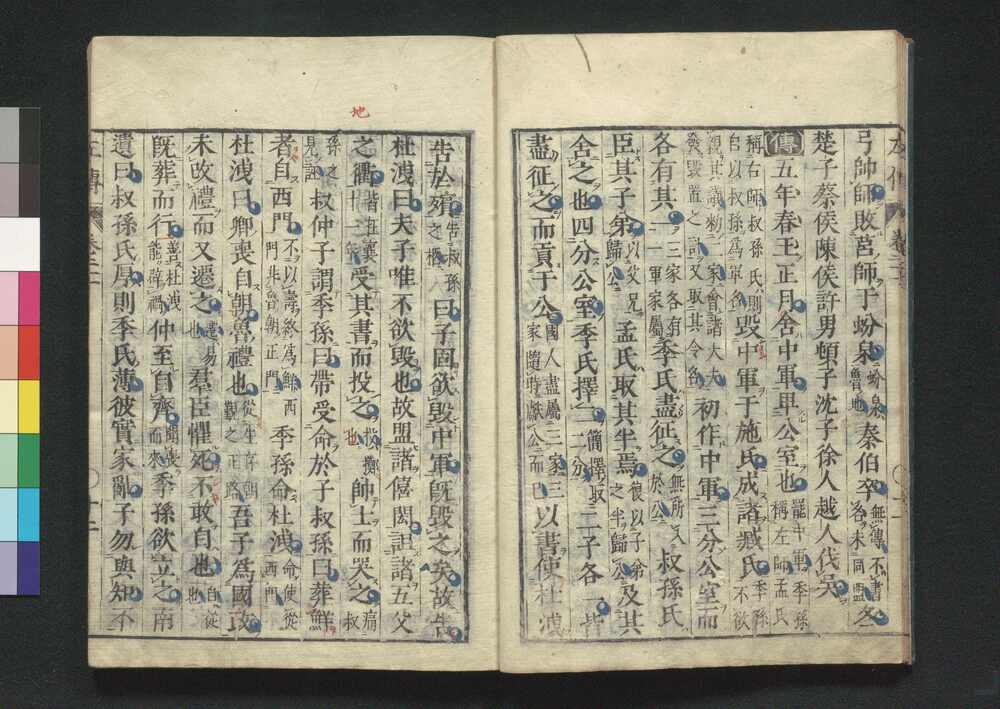 弓帥師敗莒師于蚡泉蚡泉魯地秦伯卒無傳不書名未同盟冬
楚子蔡侯陳侯許男頓子沈子徐人越人伐吳
傳五年春王正月舍中軍卑公室也罷中軍季孫稱左師孟氏
稱右師叔孫氏則自以叔孫爲軍名毀中軍于施氏成諸臧氏季孫不欲
親其議勑二家會諸大夫發毀置之計又取其令名初作中軍三分公室而
各有其一三家各有一軍家屬季氏盡征之無所入於公叔孫氏
臣其子弟以父兄歸公孟氏取其半焉復以子弟之半歸公及其
舍之也四分公室季氏擇二簡擇取二分二子各一皆
盡征之而貢于公國人盡屬三家三家隨時獻公而已以書使杜洩
告於殯告叔孫之柩曰子固欲毀中軍既毀之矣故告
杜洩曰夫子唯不欲毀也故盟諸僖閎詛諸五父
之衢皆在襄十一年受其書而投之投擲也帥士而哭之痛叔
孫之見誣叔仲子謂季孫曰帶受命於子叔孫曰葬鮮
者自西門不以壽終爲鮮西門非魯朝正門季孫命杜洩命使從西門
杜洩曰卿喪自朝魯禮也從生存朝覲之正路吾子爲國政
未改禮而又遷之遷易也羣臣懼死不敢自也自從也
既葬而行善杜洩能辟禍仲至自齊聞喪而來季孫欲立之南
遺曰叔孫氏厚則季氏薄彼實家亂子勿與知不
地